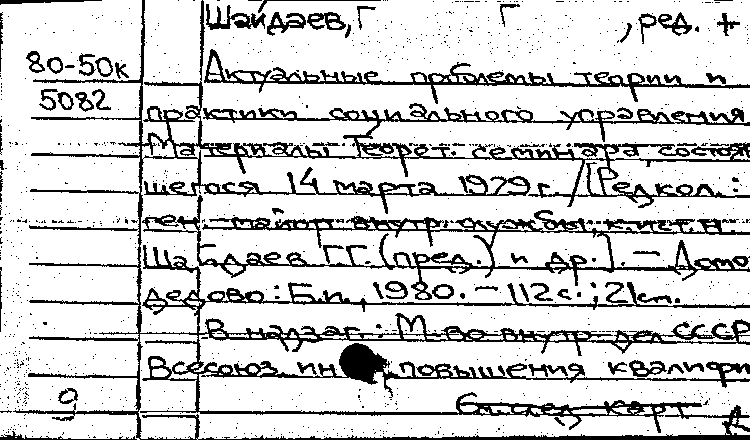 Шайдаев, Г Г , ред. +
80-50к Актуальные проблемы теории и
5082 практики социального управления
Материалы Теорет. семинара, состояв
шегося 14 марта 1979 г. /[Редкол.:
ген.-майор внутр. службы, к.ист.н.
Шайдаев Г.Г. (пред.) и др.]. — Домо
дедово: Б.и., 1980. — 112 с.; 21 см.
В надзаг.: М-во внутр. дел СССР
Всесоюз. ин повышения квалифи
9 См. след. карт